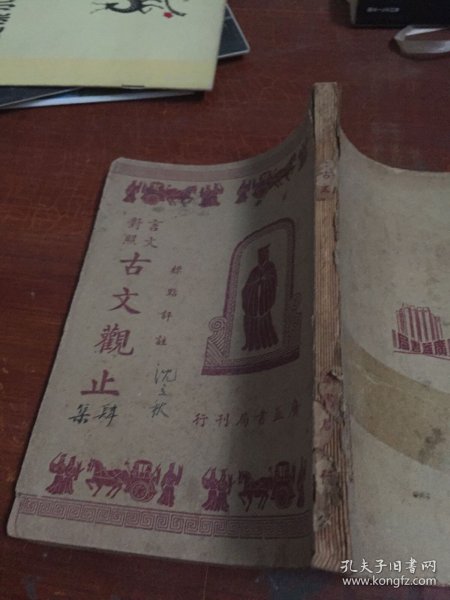 言文
對照
古文觀止
標點評註
沈立秋
肆集
廣益書局刊行
孔夫子旧书网
www.kongfz.com